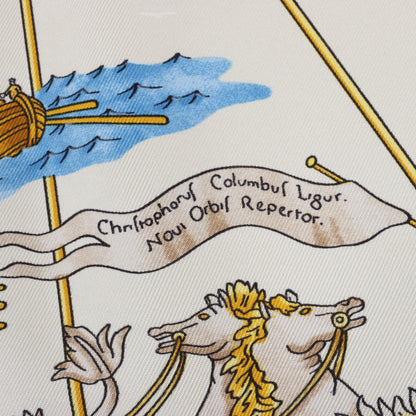 Chriſtophoruſ Columbuſ Ligur.
Noui Orbiſ Repertor.